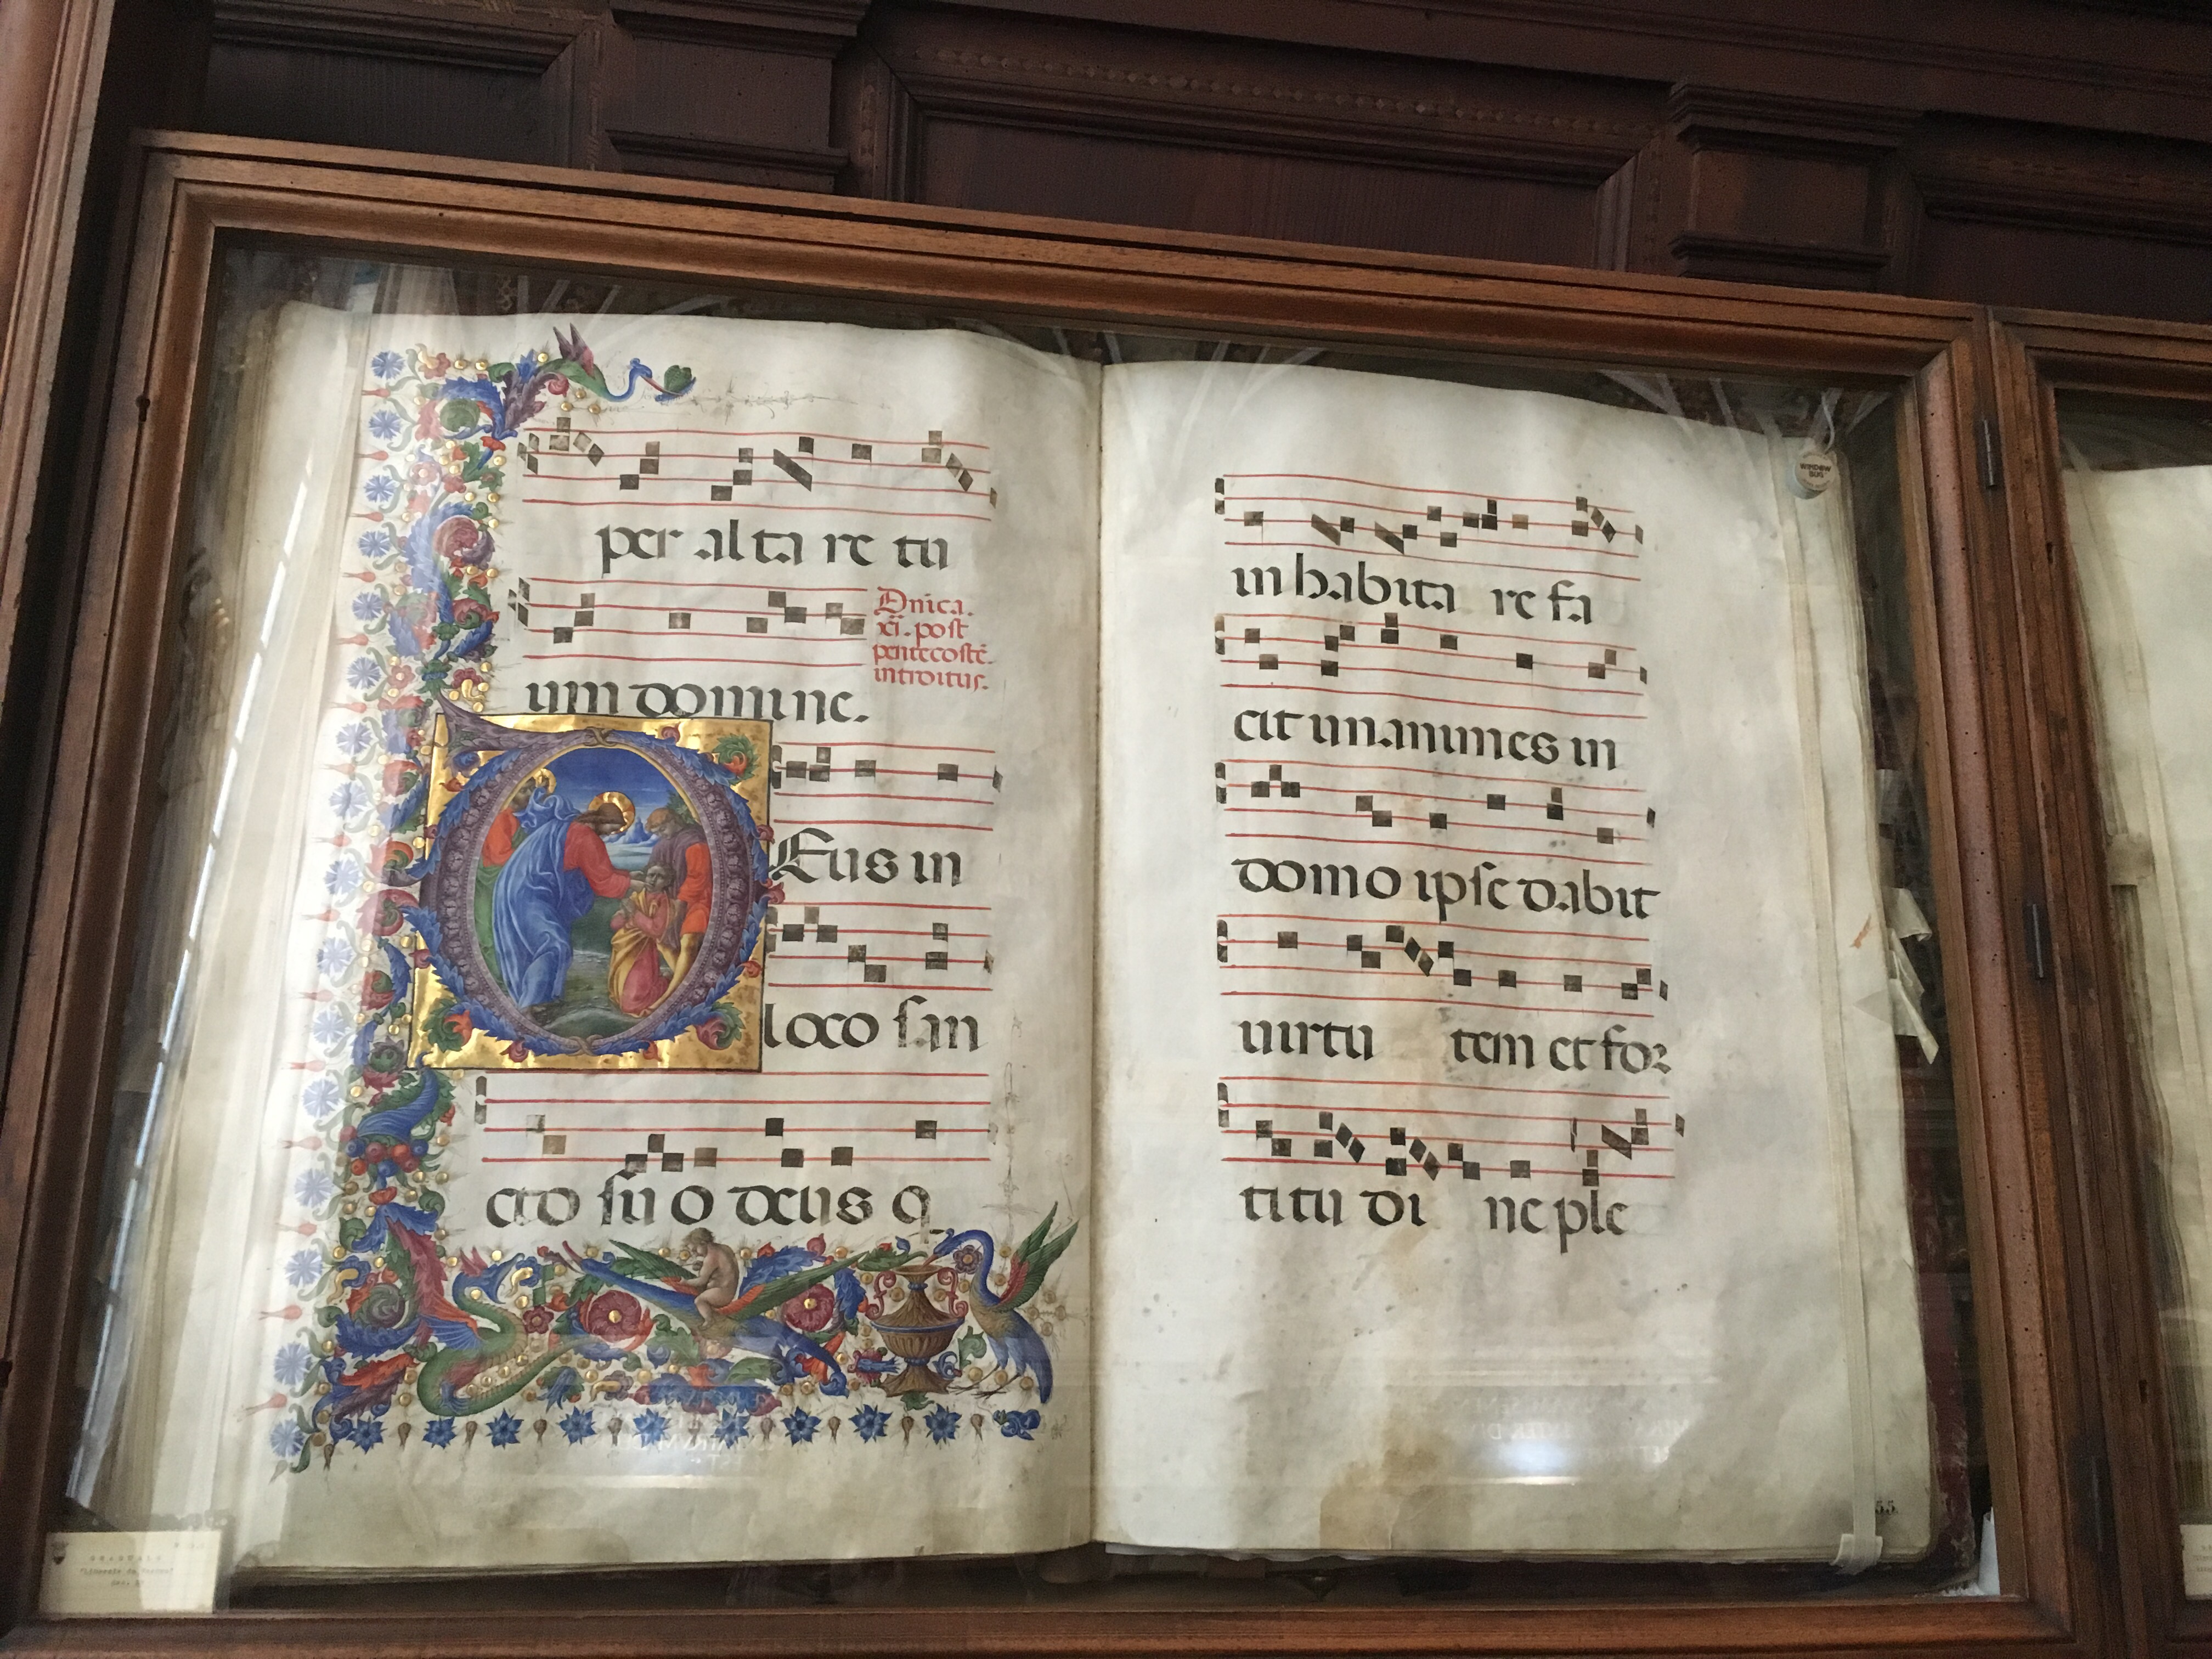 per alta re tu
um domine.
Dnica.
xi. post
pentecoste.
introitus.
DEus in
loco san
cto suo deus q
inhabita re fa
cit unanimes in
domo ipse dabit
uirtu tem et for
titu di ne ple
WINDOW
BUG
55